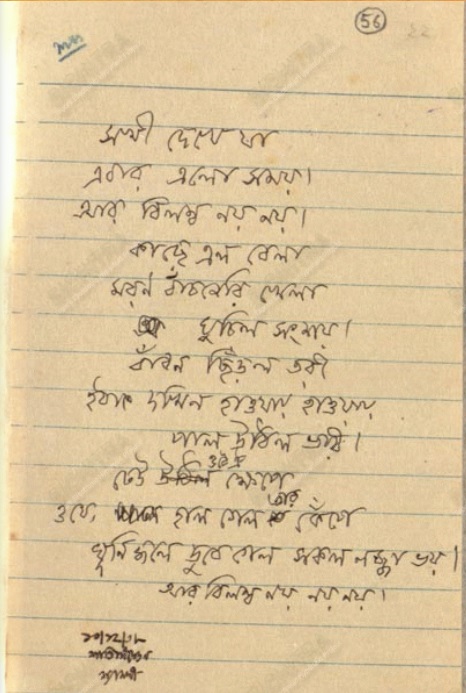 56
সখী দেখে যা
এবার এলো সময়।
আর বিলম্ব নয় নয়।
কাছে এল বেলা
মরণ বাঁচনেরি খেলা
ঘুচিল সংশয়।
বাঁধন ছিঁড়ল তরী
হঠাৎ দখিন হাওয়ায় হাওয়ায়
পাল উঠিল ভরি।
ঢেউ উঠেছে ক্ষেপে
ওযে, হাল গেল তার কেঁপে
ঘূর্নিজলে ডুবে গেল সকল লজ্জা ভয়।
আর বিলম্ব নয় নয় নয়।